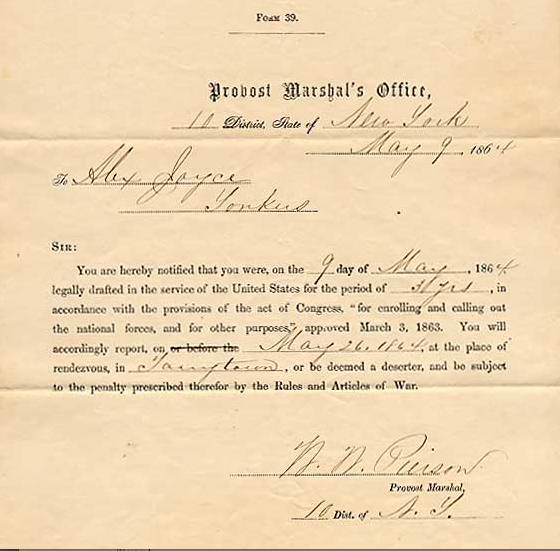 Form 39.
Provost Marshal's Office,
10 District, State of New York
May 9, 1864
To Alex Joyce
Yonkers
SIR:
You are hereby notified that you were, on the 9 day of May, 1864
legally drafted in the service of the United States for the period of 3 yrs, in
accordance with the provisions of the act of Congress, "for enrolling and calling out
the national forces, and for other purposes," approved March 3, 1863. You will
accordingly report, on or before the May 26, 1864, at the place of
rendezvous, in Tarrytown, or be deemed a deserter, and be subject
to the penalty prescribed therefor by the Rules and Articles of War.
W. W. Pierson
Provost Marshal,
10 Dist. of N. Y.